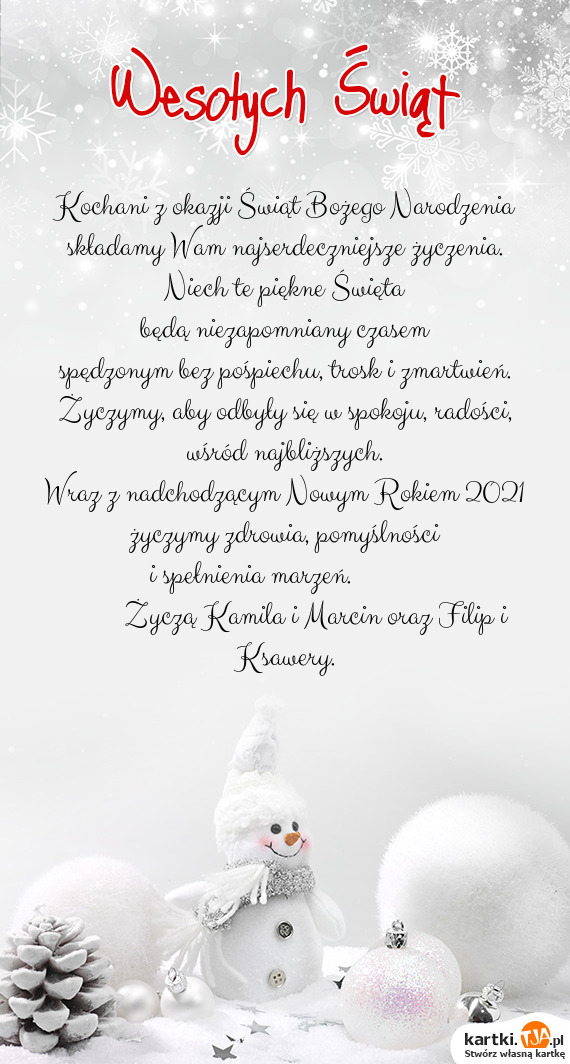 Wesołych Świąt
Kochani z okazji Świąt Bożego Narodzenia
składamy Wam najserdeczniejsze życzenia.
Niech te piękne Święta
będą niezapomniany czasem
spędzonym bez pośpiechu, trosk i zmartwień.
Życzymy, aby odbyły się w spokoju, radości,
wśród najbliższych.
Wraz z nadchodzącym Nowym Rokiem 2021
życzymy zdrowia, pomyślności
i spełnienia marzeń.
Życzą Kamila i Marcin oraz Filip i
Ksawery.
kartki.TJA.pl
Stwórz własną kartkę